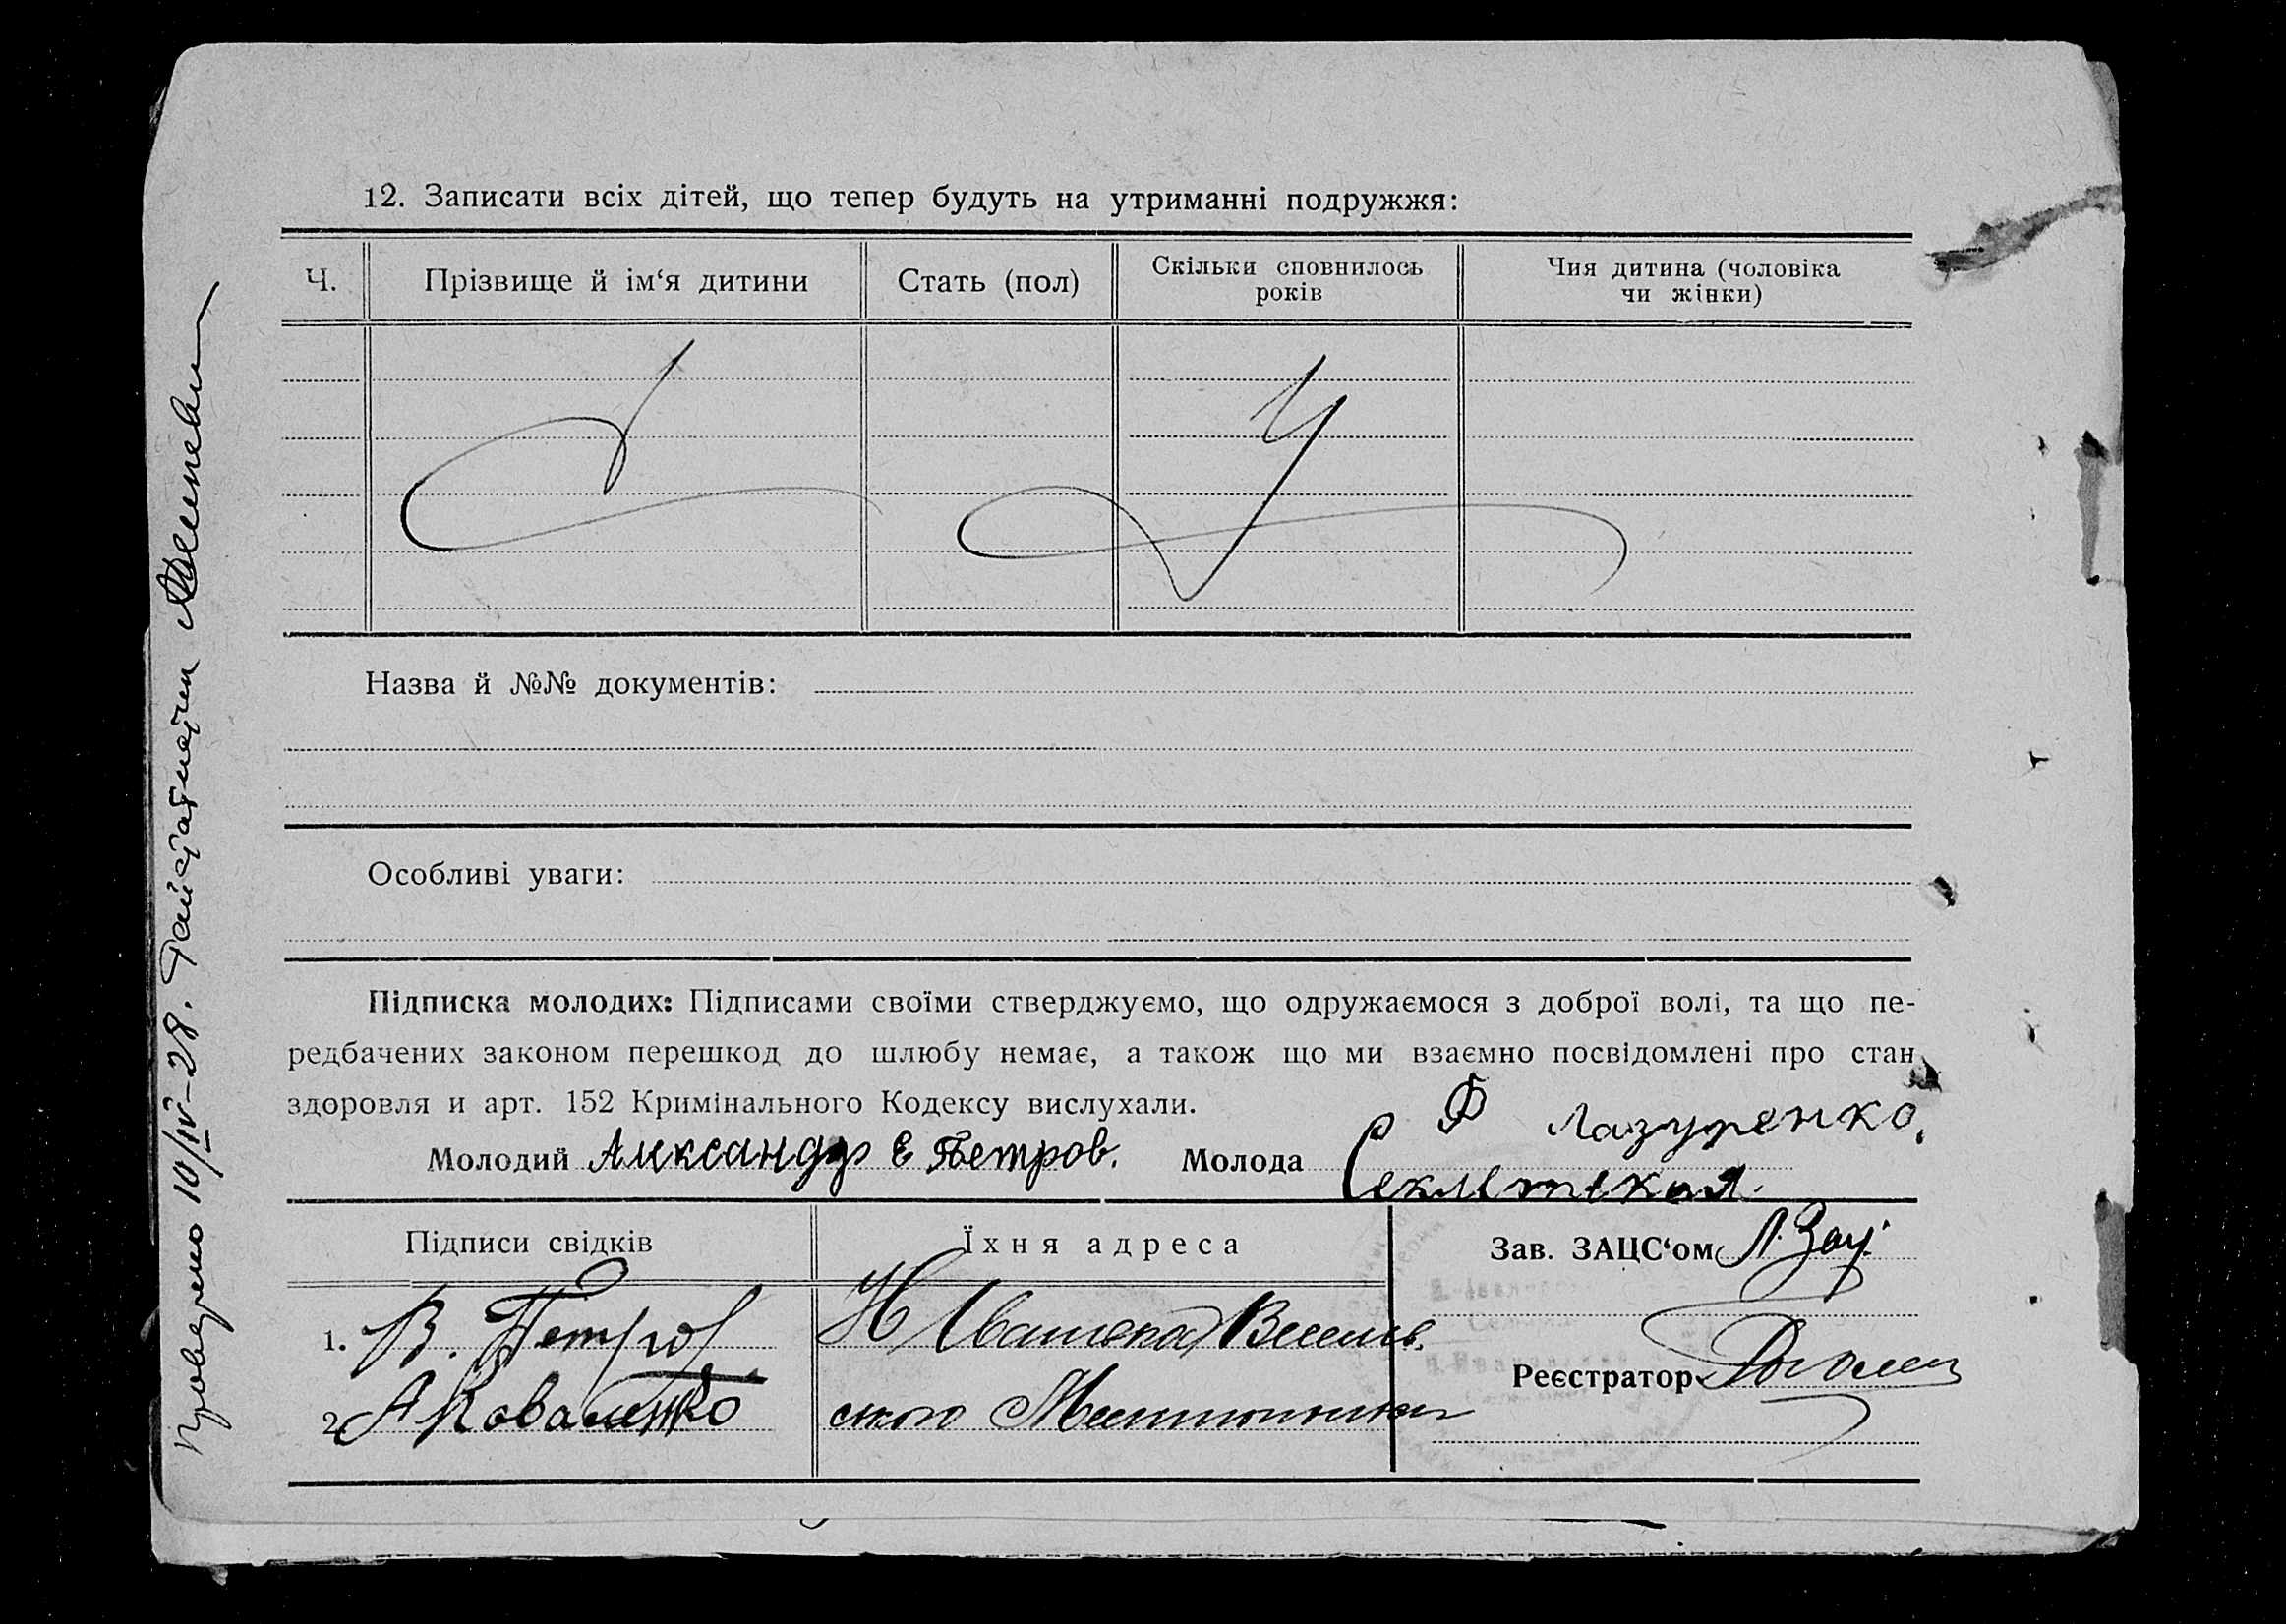 12. Записати всіх дітей, що тепер будуть на утриманні подружжя:
Ч.
Прізвище й ім‘я дитини
Стать (пол)
Скільки сповнилось
років
Чия дитина (чоловіка
чи жінки)
Назва й №№ документів:
Особливі уваги:
Підписка молодих: Підписами своїми стверджуємо, що одружаємося з доброї волі, та що пе-
редбачених законом перешкод до шлюбу немає, а також що ми взаємно посвідомлені про стан
здоровля и арт. 152 Кримінального Кодексу вислухали.
Молодий Александр Е Петров.
Молода Ф Лазуренко,
Підписи свідків
Їхня адреса
Зав. ЗАЦС‘ом
1. В. Петров
2 А Коваленко
Н Ивановка Веселів.
ського
Реєстратор
Проверено 10/IV-28.